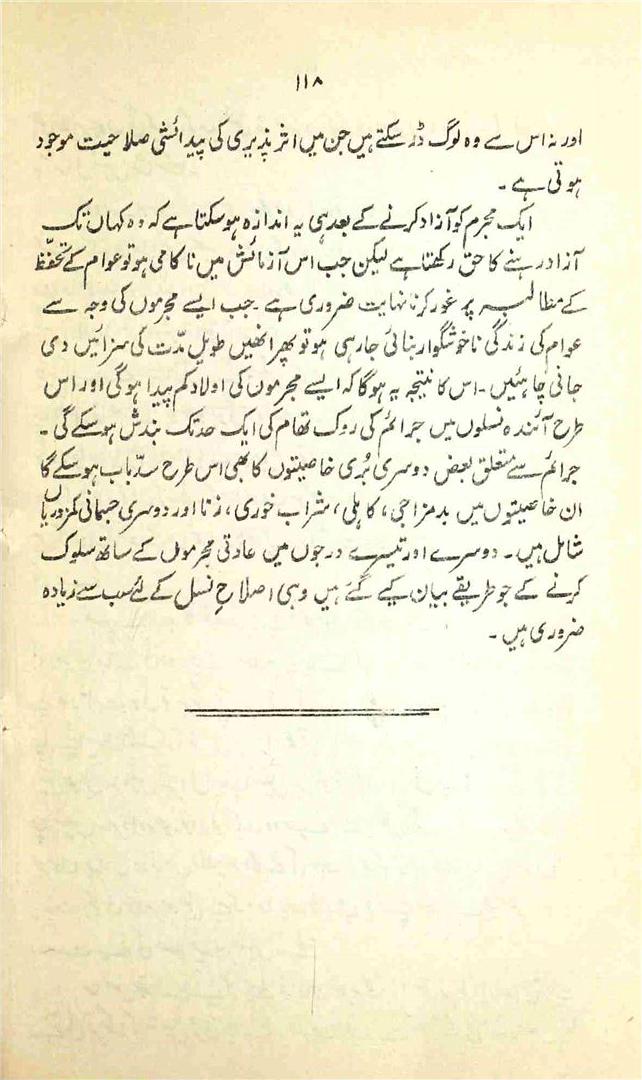 ۱۱۸
اور نہ اس سے وہ لوگ ڈر سکتے ہیں جن میں اثر پذیری کی پیدائشی صلاحیت موجود
ہوتی ہے۔
ایک مجرم کو آزاد کرنے کے بعد ہی یہ اندازہ ہو سکتا ہے کہ وہ کہاں تک
آزاد رہنے کا حق رکھتا ہے لیکن جب اس آزمائش میں ناکامی ہو تو عوام کے تحفّظ
کے مطالبہ پر غور کرنا نہایت ضروری ہے۔ جب ایسے مجرموں کی وجہ سے
عوام کی زندگی ناخوشگوار بنائی جارہی ہو تو پھر انھیں طویل مدّت کی سزائیں دی
جانی چاہئیں۔ اس کا نتیجہ یہ ہوگا کہ ایسے مجرمون کی اولاد کم پیدا ہوگی اور اس
طرح آئندہ نسلوں میں جرائم کی روک تھام کی ایک حد تک بندش ہو سکے گی۔
جرائم سے متعلق بعض دوسری بُری خاصیتوں کا بھی اس طرح سدّباب ہو سکے گا
ان خاصیتوں میں بدمزاجی، کاہلی، شراب خوری، زنا اور دوسری جسمانی کمزوریاں
شامل ہیں۔ دوسرے اور تیسرے درجوں میں عادتی مجرموں کے ساتھ سلوک
کرنے کے جو طریقے بیان کیے گئے ہیں وہی اصلاحِ نسل کے لئے سب سے زیادہ
ضروری ہیں۔